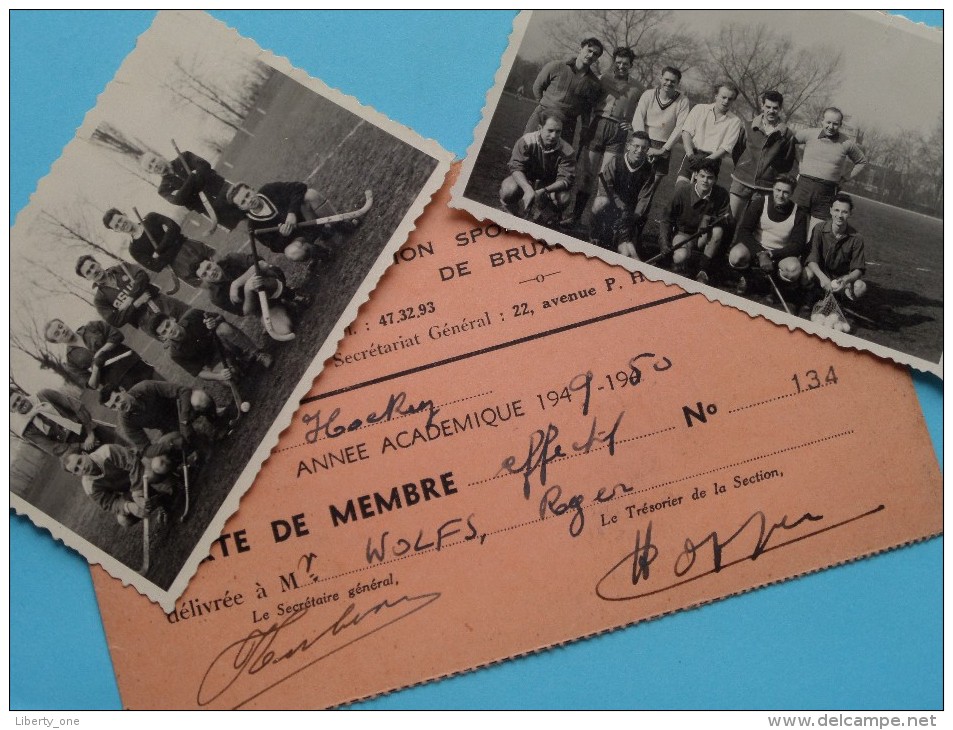 ION SPO
DE BRUX
: 47.32.93
Secrétariat Général : 22, avenue P. H
Hockey
ANNEE ACADEMIQUE 1949-1950
TE DE MEMBRE effectif No 134
délivrée à Mr WOLFS, Roger
Le Secrétaire général,
Le Trésorier de la Section,
Liberty_one
www.delcampe.net